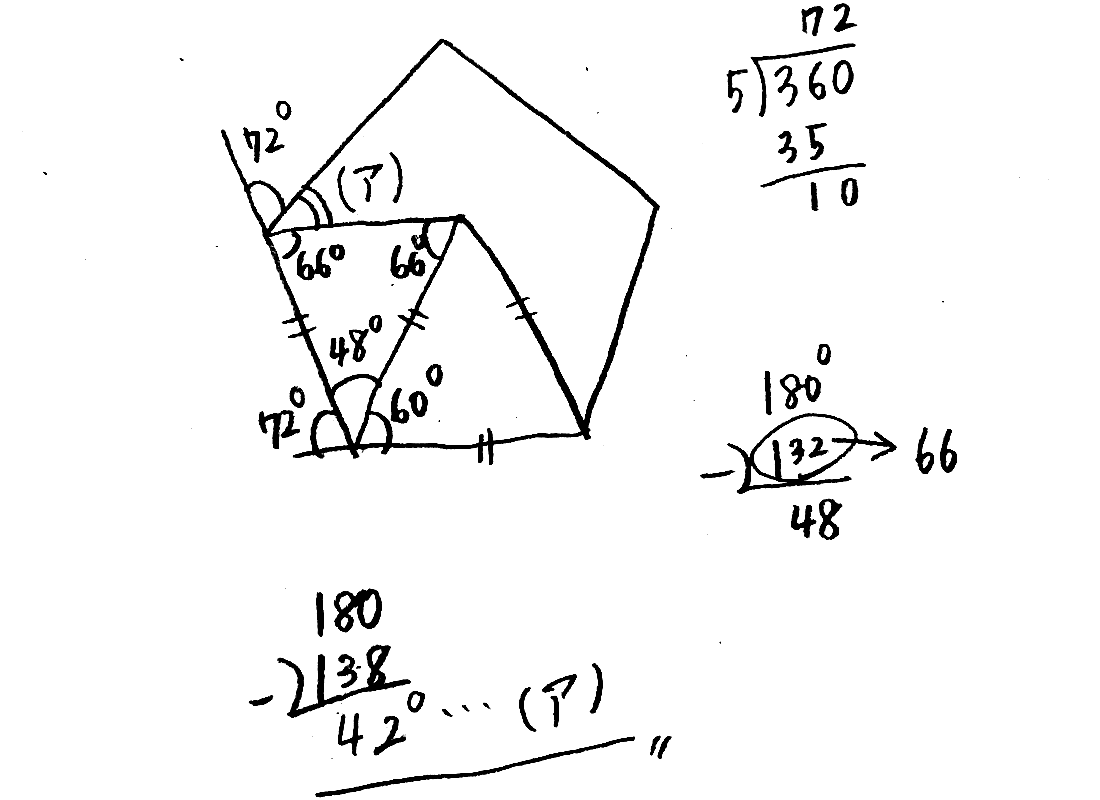 72
5)360
35
10
72°
(ア)
66°
66°
48°
72°
60°
180°
-)132→66
48
180
-)138
42°…(ア)
〃